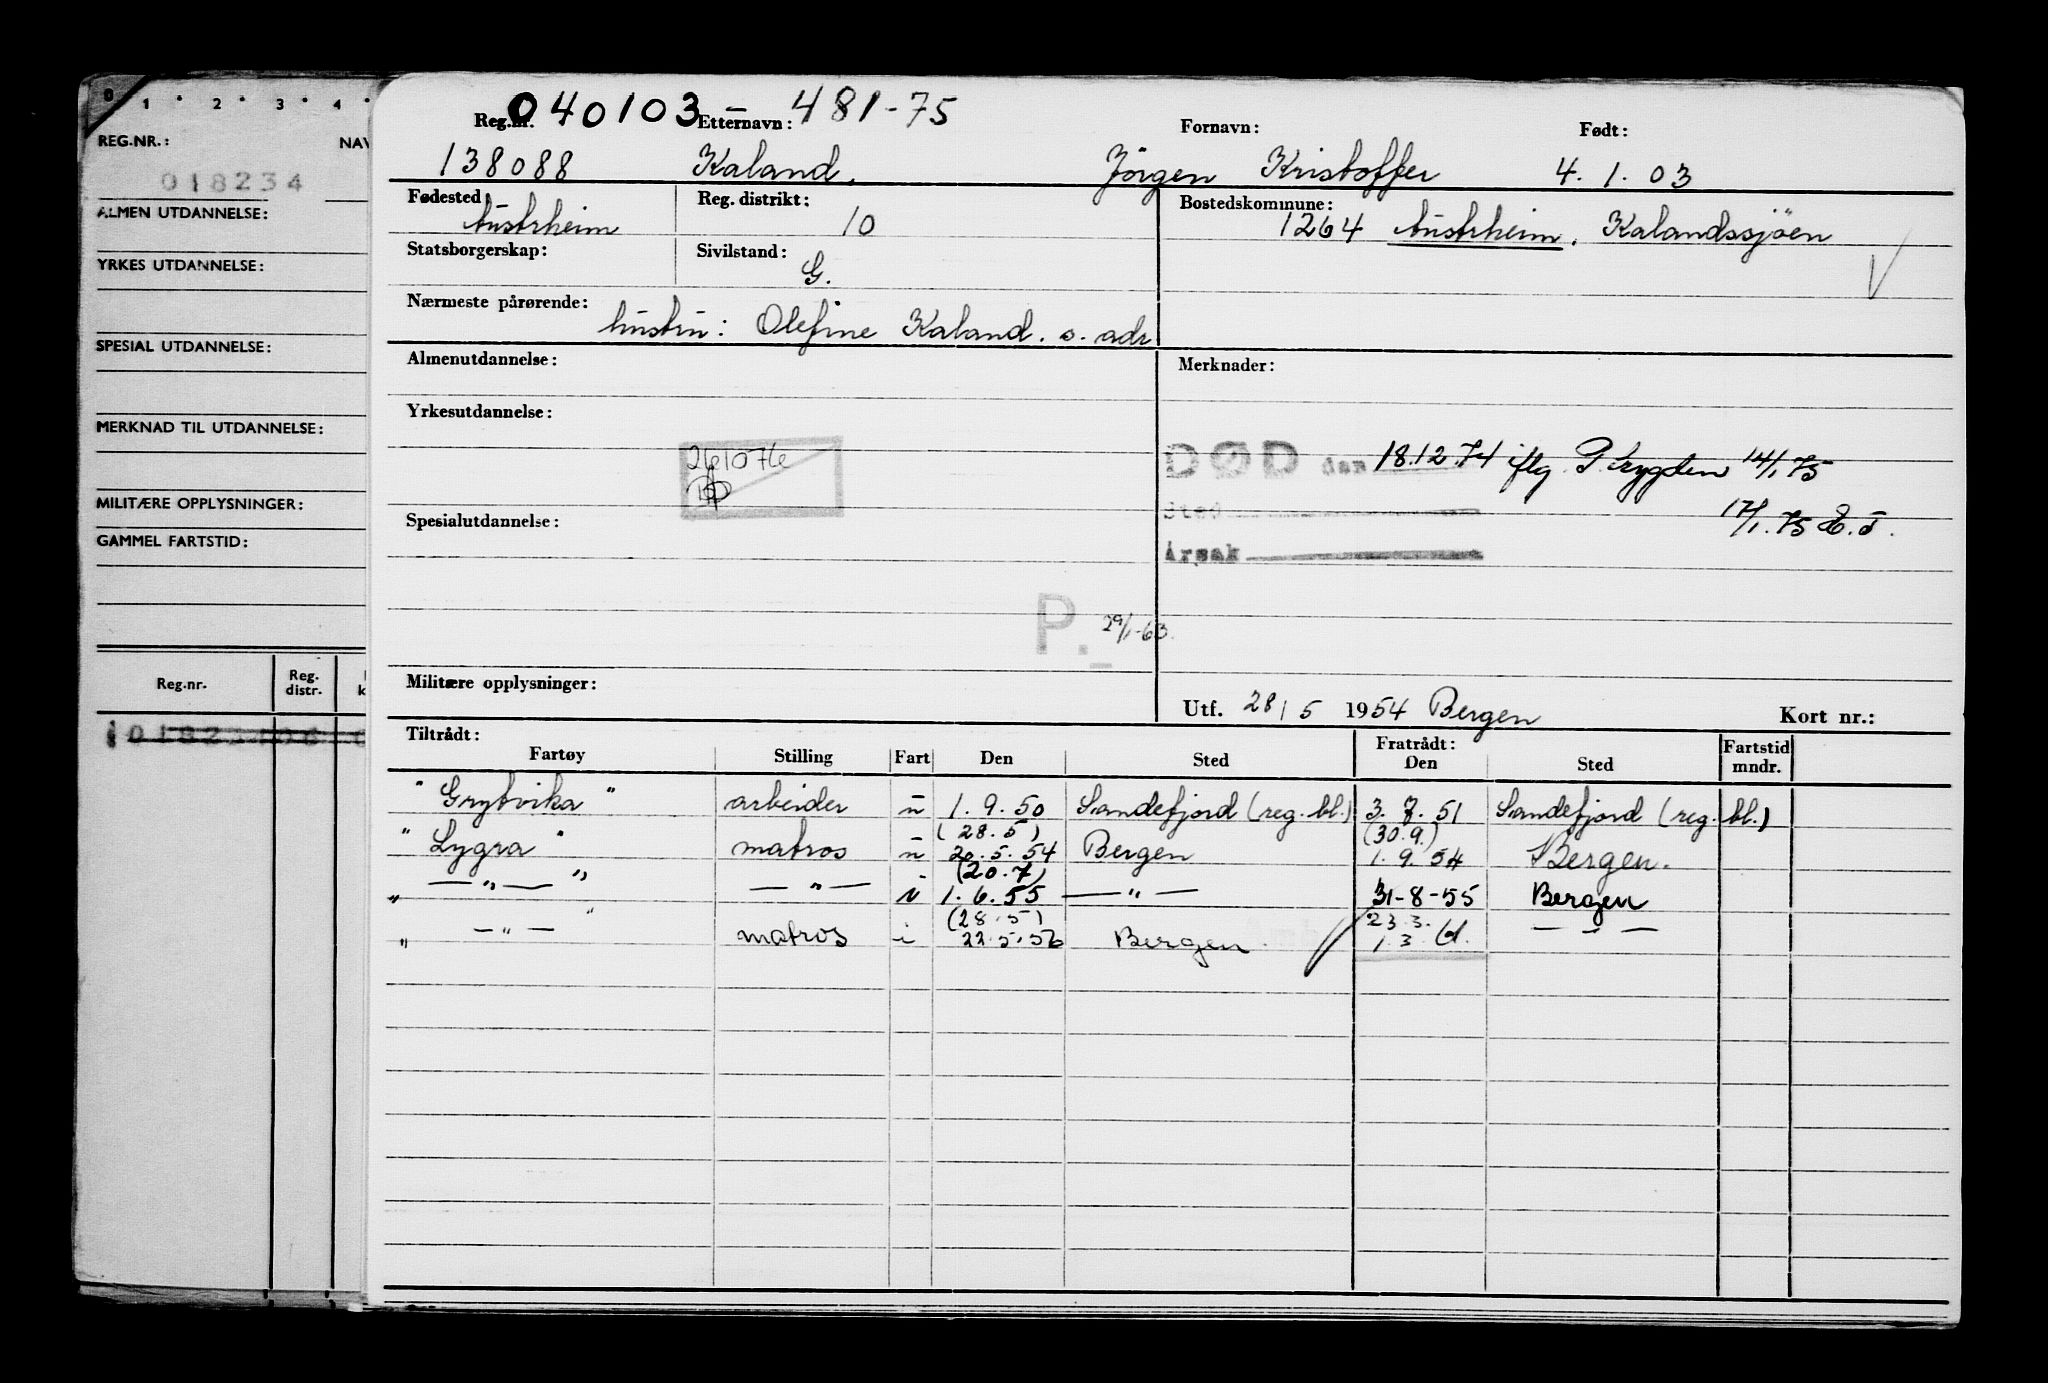 0 1 2 3 4
REG.NR.: NAV
018234
ALMEN UTDANNELSE:
YRKES UTDANNELSE:
SPESIAL UTDANNELSE:
MERKNAD TIL UTDANNELSE:
MILITÆRE OPPLYSNINGER:
GAMMEL FARTSTID:
Reg.nr. Reg. distr. k
040103 - 481-75
Reg.nr. Etternavn: Fornavn: Født:
138088 Kaland. Jörgen Kristoffer 4. 1. 03
Fødested: Reg. distrikt: Bostedskommune:
Austrheim 10 1264 Austrheim, Kalandssjöen
Statsborgerskap: Sivilstand:
G.
Nærmeste pårørende:
hustru: Olefine Kaland. s. adr
Almenutdannelse: Merknader:
Yrkesutdannelse:
261076
DØD den 18.12.74 iflg. P. trygden 14/1.75
Sted
17/1.75 E.T.
Årsak
Spesialutdannelse:
P. 29/1-63.
Militære opplysninger:
Utf. 28/5 1954 Bergen Kort nr.:
Tiltrådt: Fratrådt: Fartstid
Fartøy Stilling Fart Den Sted Den Sted mndr.
"Grytvika" arbeider u 1. 9. 50 Sandefjord (reg. bl.) 3. 7. 51 Sandefjord (reg. bl.)
(28.5) (30.9.)
"Lygra" matros u 20.5.54 Bergen 1. 9. 54 Bergen.
(20.7)
" —"— " —"— i 1. 6. 55 —"— 31-8-55 Bergen
(28.5) 23.3.
" —"— " matros i 22.5.56 Bergen 1. 3. 61. — " —